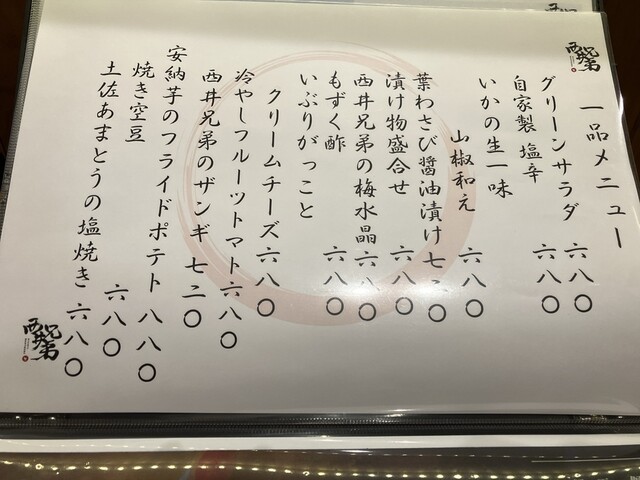 西井兄弟
一品メニュー
グリーンサラダ 六八〇
自家製 塩辛 六八〇
いかの生一味
山椒和え 六八〇
葉わさび醤油漬け 七二〇
漬け物盛合せ 六八〇
西井兄弟の梅水晶 六八〇
もずく酢 六八〇
いぶりがっこと
クリームチーズ 六八〇
冷やしフルーツトマト 六八〇
西井兄弟のザンギ 七二〇
安納芋のフライドポテト 八八〇
焼き空豆 六八〇
土佐あまとうの塩焼き 六八〇
西井兄弟